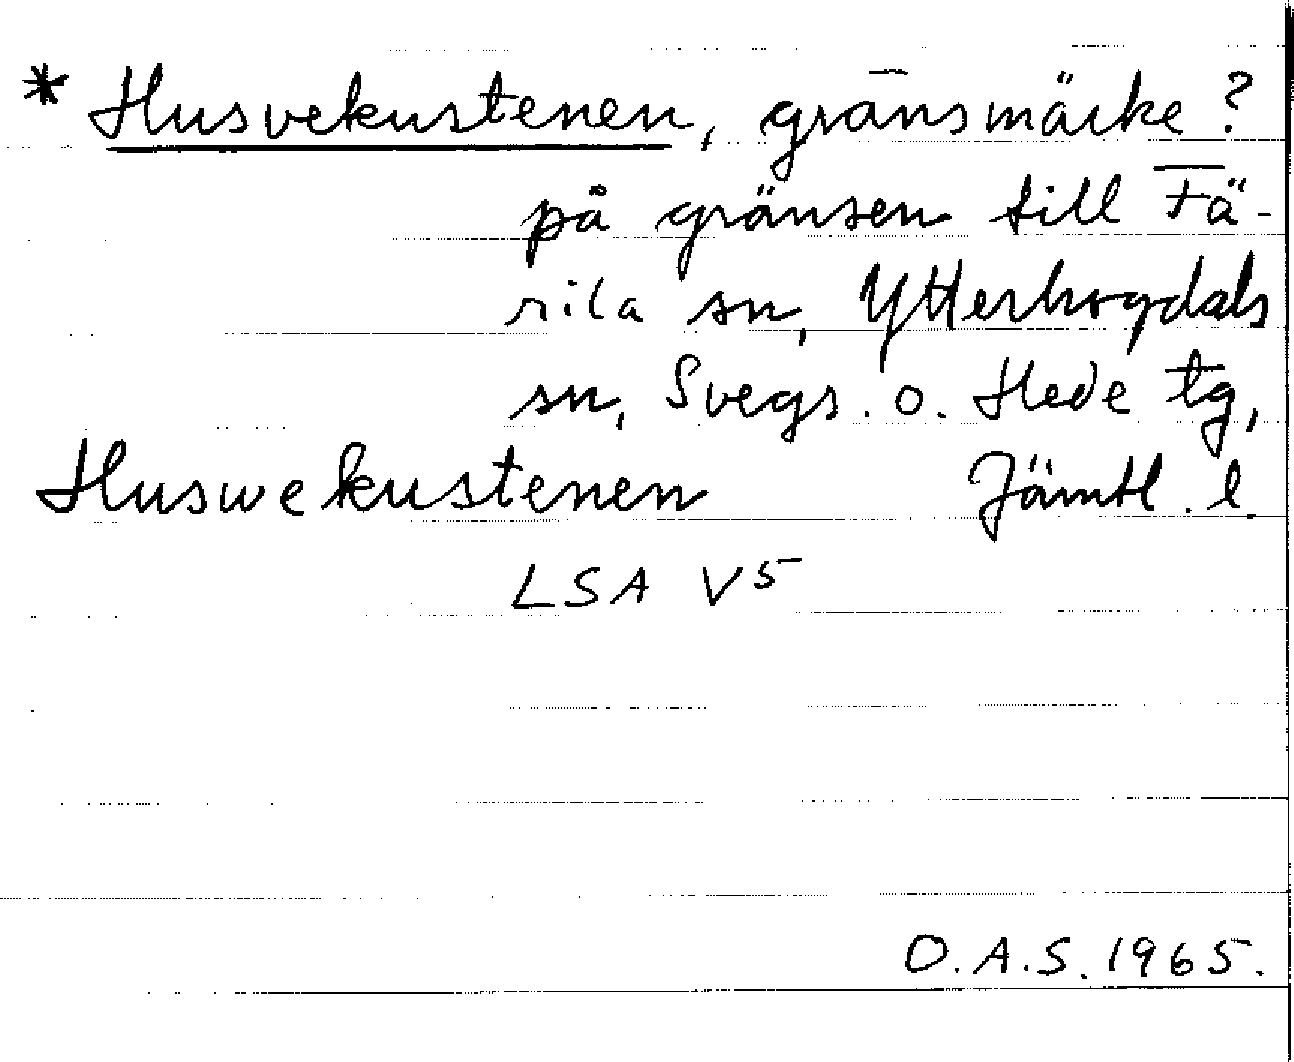 * Husvekustenen, gränsmärke?
på gränsen till Fä-
rila sn, Ytterhogdals
sn, Svegs. o. Hede tg,
Huswekustenen Jämtl. l.
LSA V5
O.A.S. 1965.